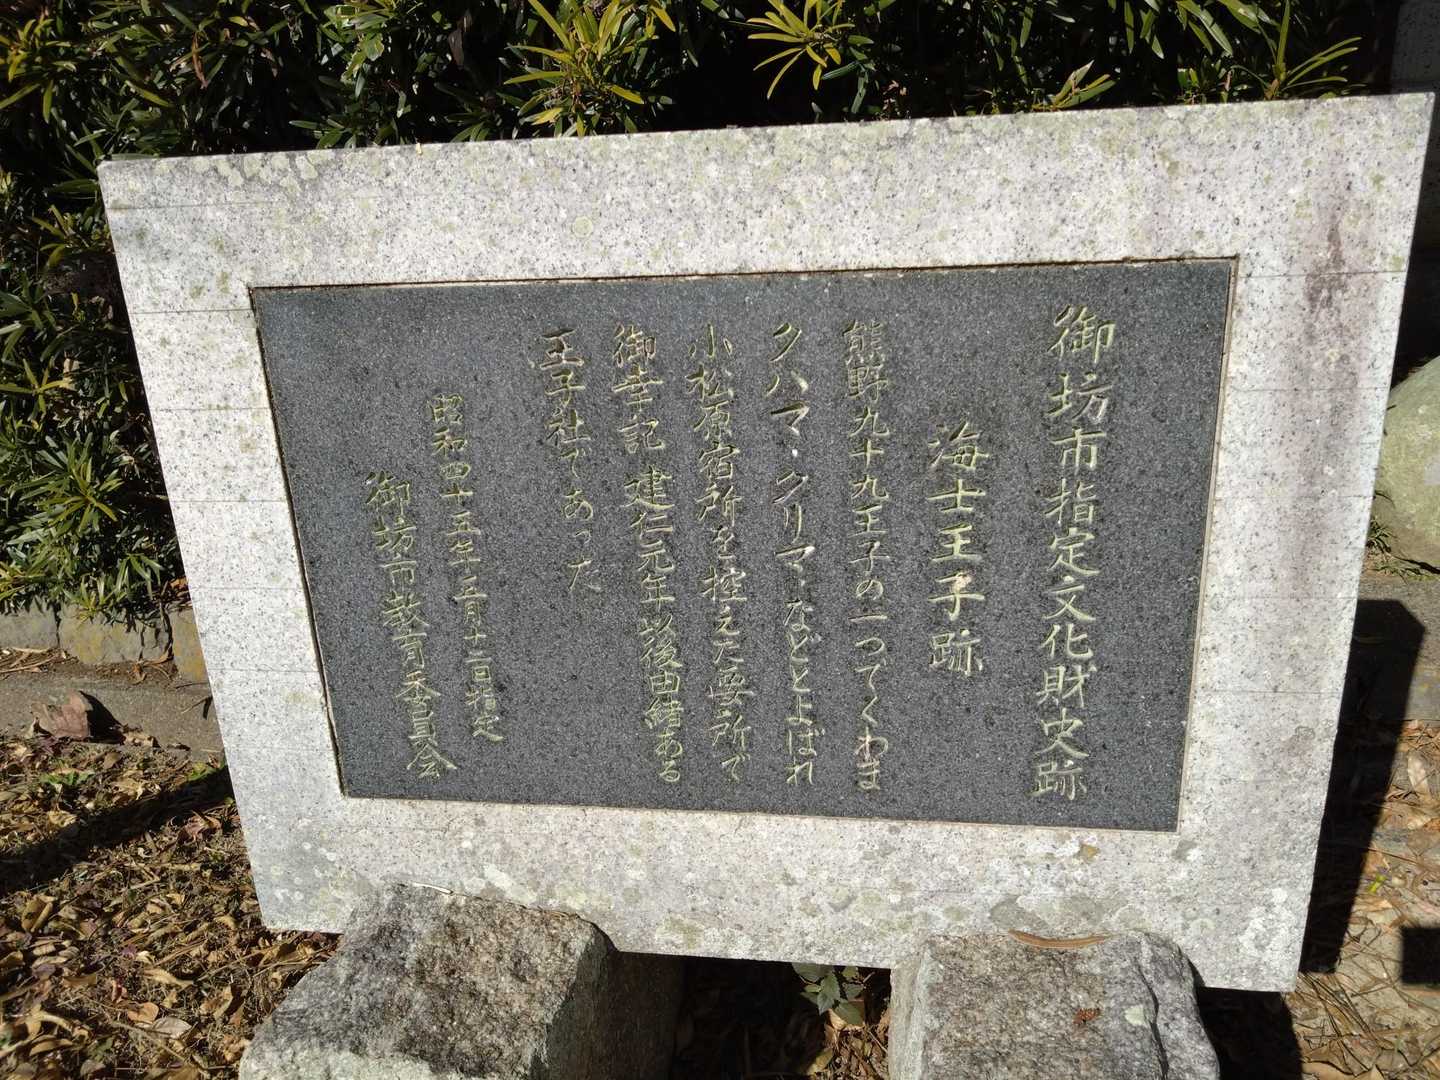 御坊市指定文化財史跡
海士王子跡
熊野九十九王子の一つでくわま
クハマ・クリマ・などとよばれ
小松原宿所を控えた要所で
御幸記 建仁元年以後由緒ある
王子社であった
昭和四十五年三月十二日指定
御坊市教育委員会